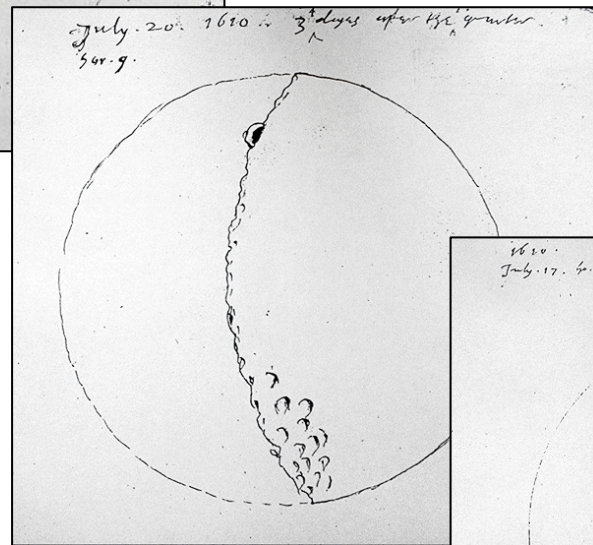 July. 20. 1610. 3 dayes after the quarter
hor. 9.
1610.
July. 17. ho.